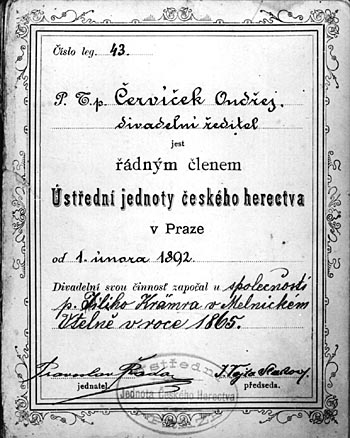 Číslo leg. 43.
P. T. p. Červíček Ondřej,
divadelní ředitel
jest
řádným členem
Ústřední jednoty českého herectva
v Praze
od 1. února 1892.
Divadelní svou činnost započal u společnosti
p. Jiliho Krämra v Melnickém
Vtelně v roce 1865.
jednatel.
předseda.
Ústřední
Jednota Českého Herectva